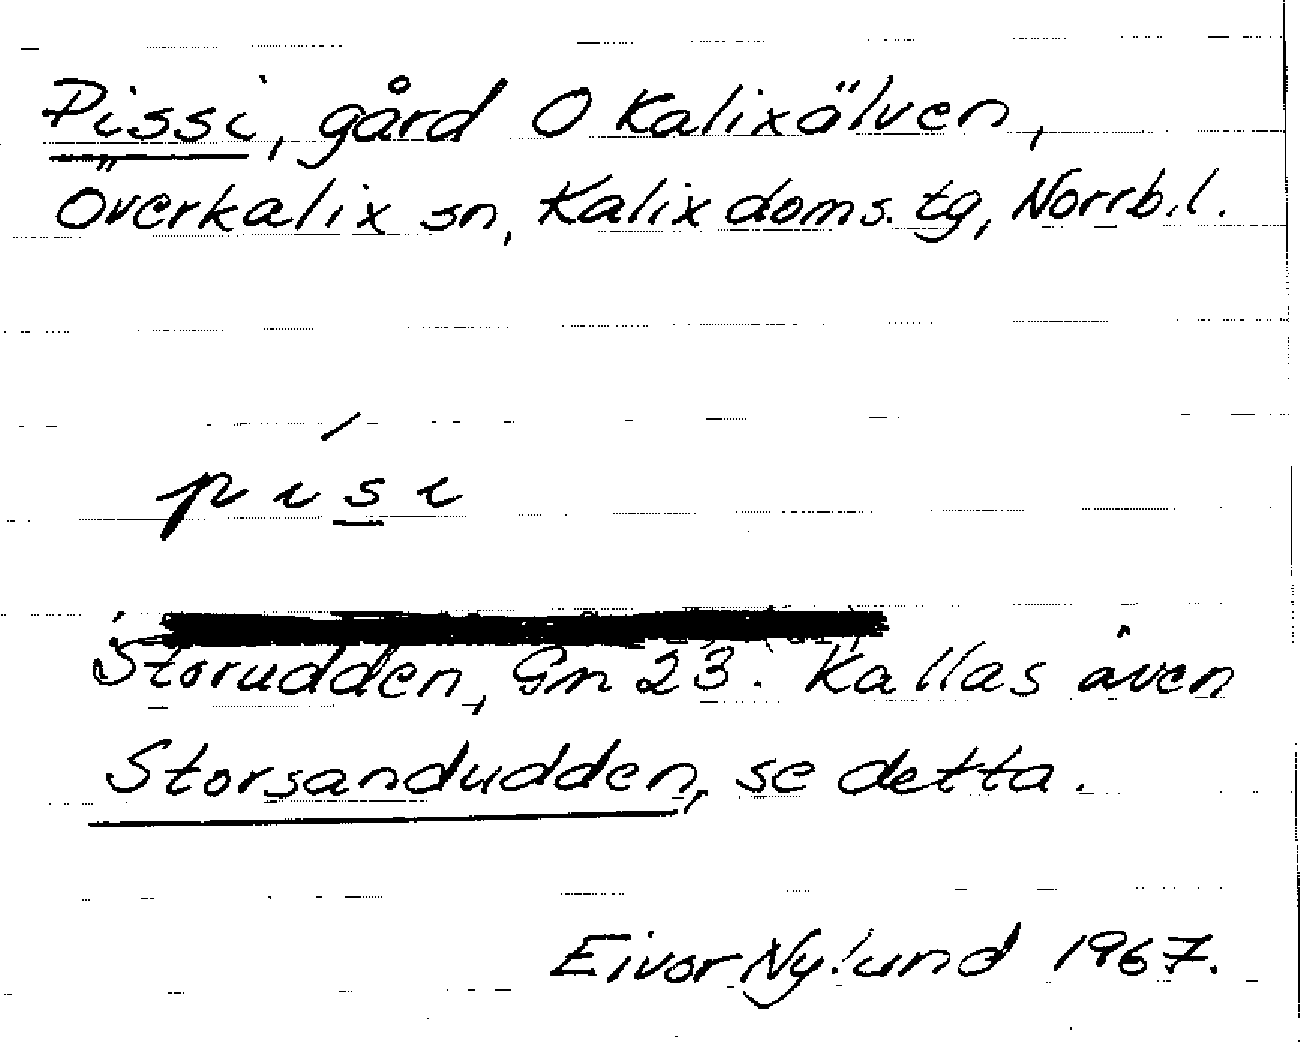 Pissi, gård O Kalixälven,
Överkalix sn, Kalix doms. tg, Norrb. l.
pısı
Storudden, Gm 23. Kallas även
Storsandudden, se detta.
Eivor Nylund 1967.